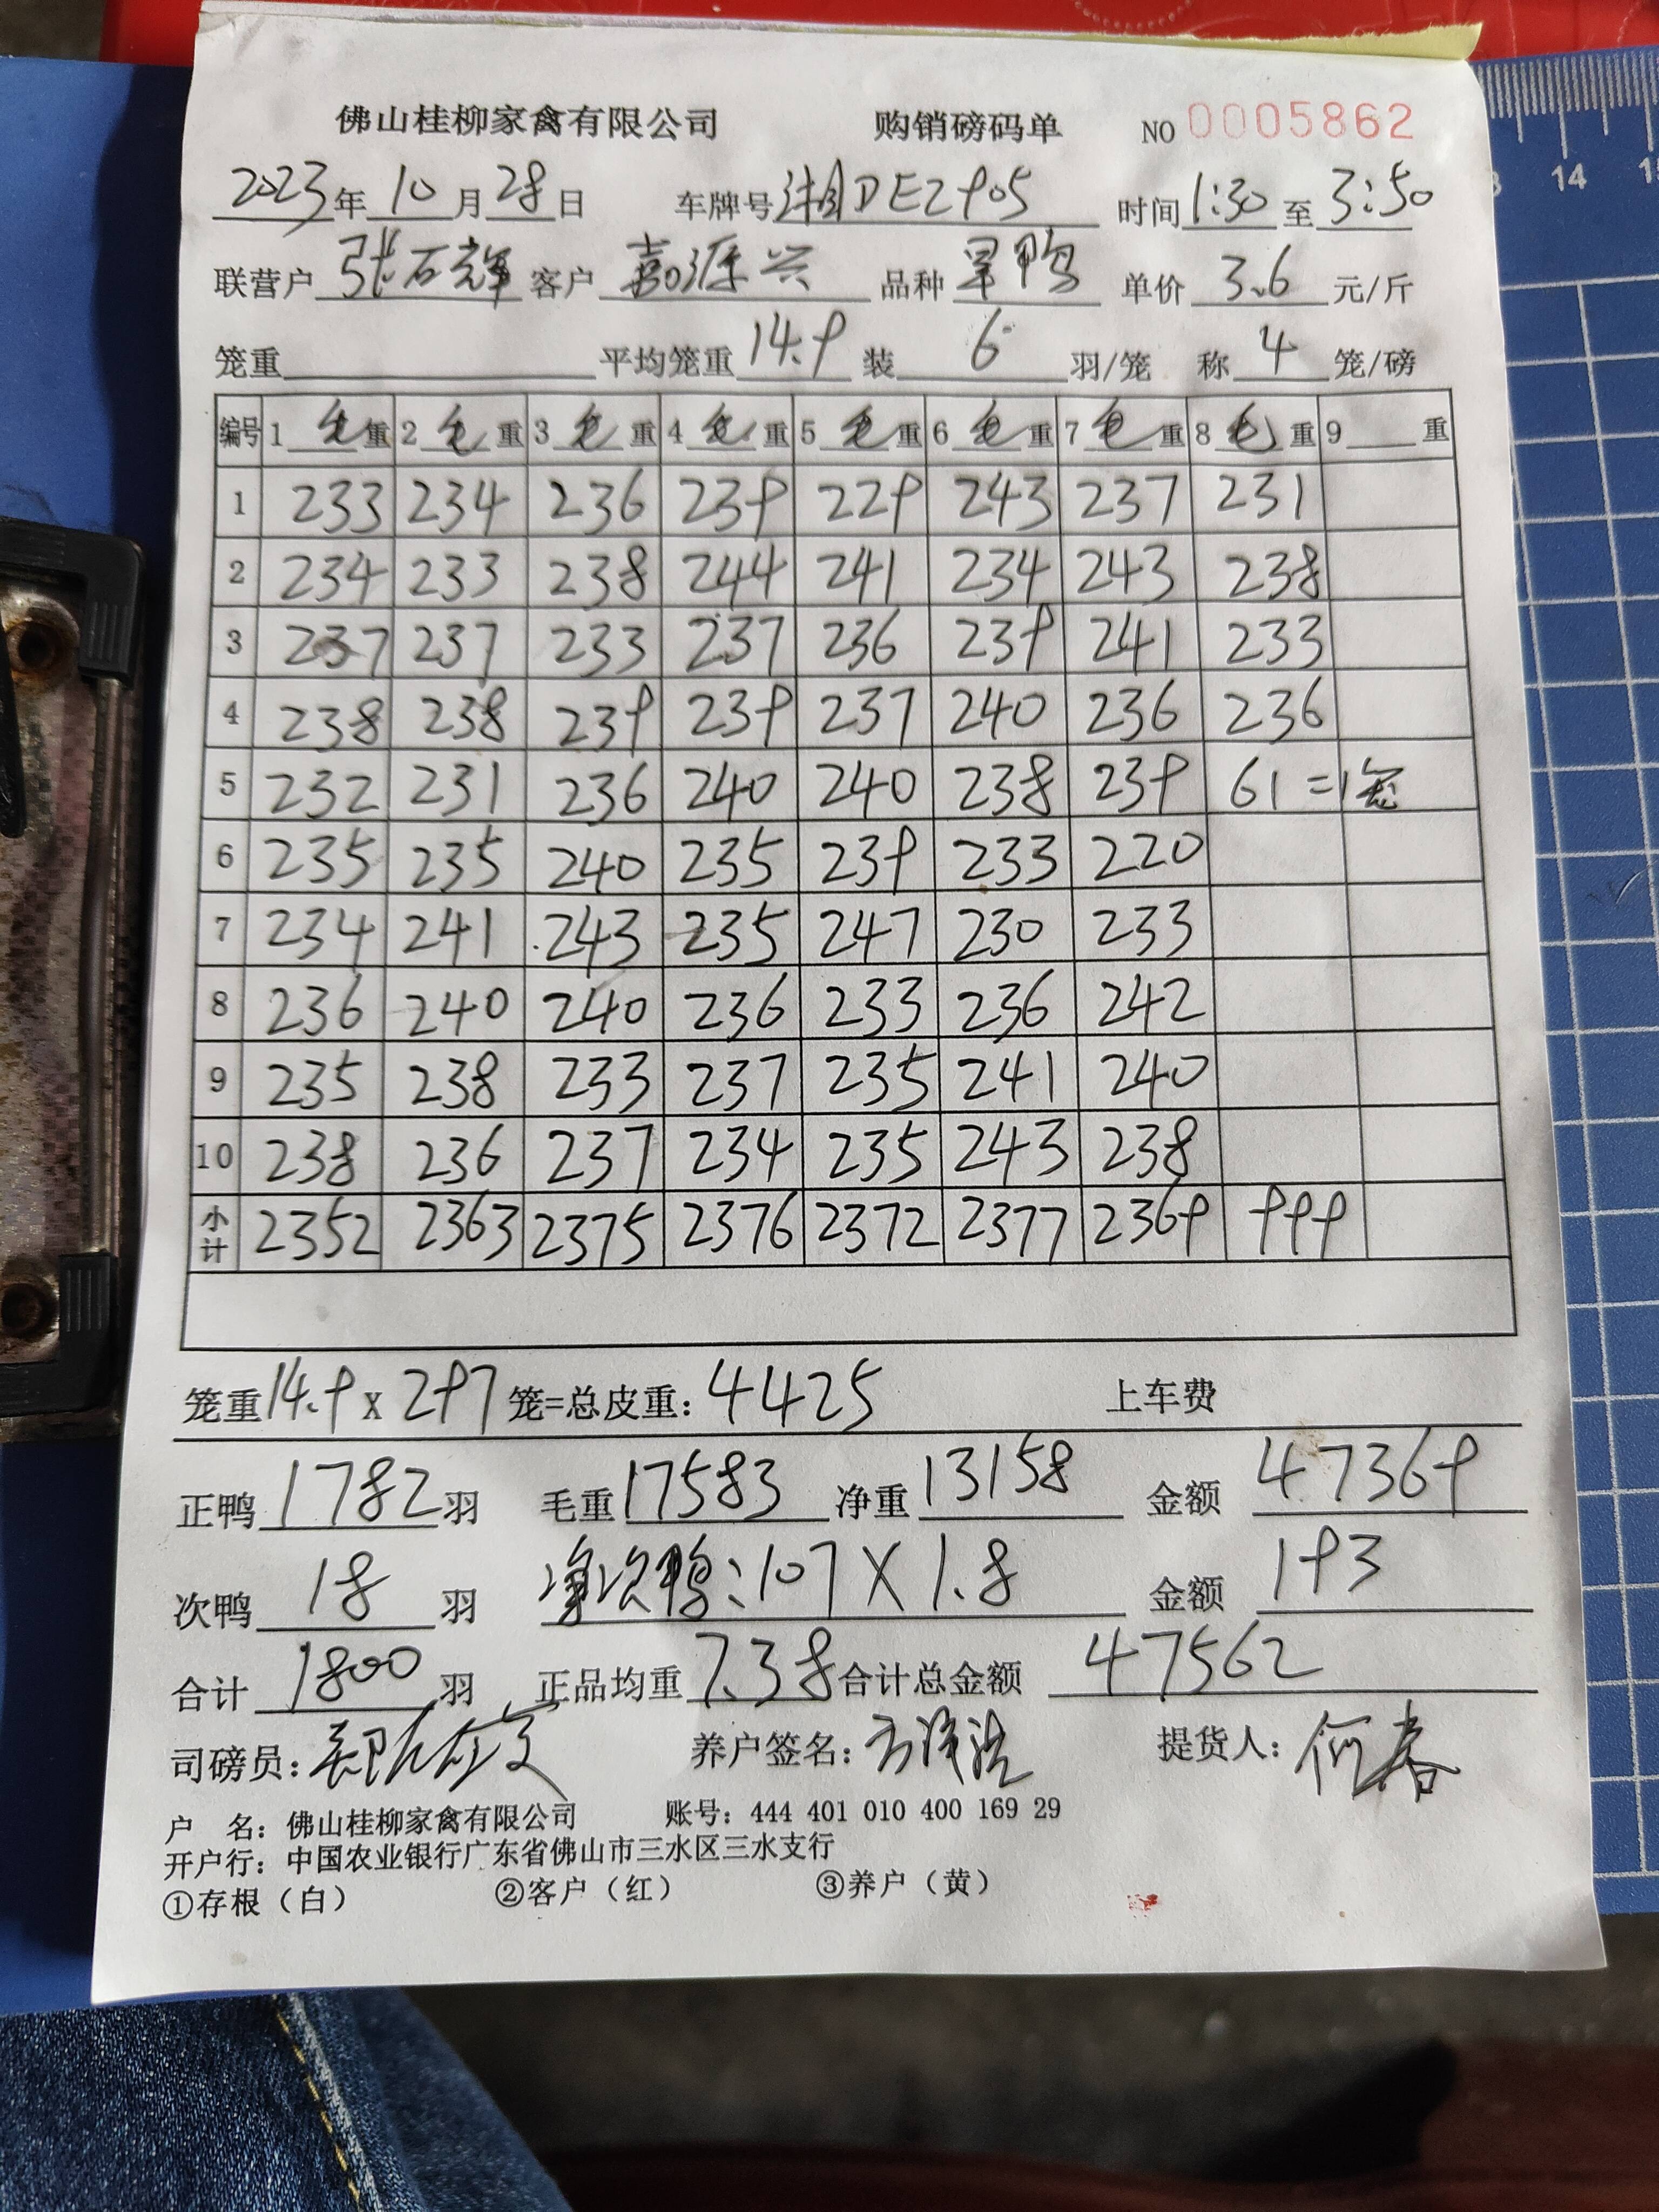 佛山桂柳家禽有限公司 购销磅码单 NO 0005862
2023年10月28日 车牌号 湘DE2905 时间 1:30 至 3:50
联营户 张石辉 客户 嘉源兴 品种 旱鸭 单价 3.6 元/斤
笼重 平均笼重 14.9 装 6 羽/笼 称 4 笼/磅
编号 1 毛重 2 毛重 3 毛重 4 毛重 5 毛重 6 毛重 7 毛重 8 毛重 9 重
1 233 234 236 239 229 243 237 231
2 234 233 238 244 241 234 243 238
3 237 237 233 237 236 239 241 233
4 238 238 239 239 237 240 236 236
5 232 231 236 240 240 238 239 61=1笼
6 235 235 240 235 239 233 220
7 234 241 243 235 247 230 233
8 236 240 240 236 233 236 242
9 235 238 233 237 235 241 240
10 238 236 237 234 235 243 238
小计 2352 2363 2375 2376 2372 2377 2369 999
笼重14.9 x 297 笼=总皮重: 4425 上车费
正鸭 1782 羽 毛重 17583 净重 13158 金额 47369
次鸭 18 羽 次鸭: 107 X 1.8 金额 193
合计 1800 羽 正品均重 7.38 合计总金额 47562
司磅员: 养户签名: 提货人: 何春
户 名: 佛山桂柳家禽有限公司 账号: 444 401 010 400 169 29
开户行: 中国农业银行广东省佛山市三水区三水支行
①存根（白） ②客户（红） ③养户（黄）
14